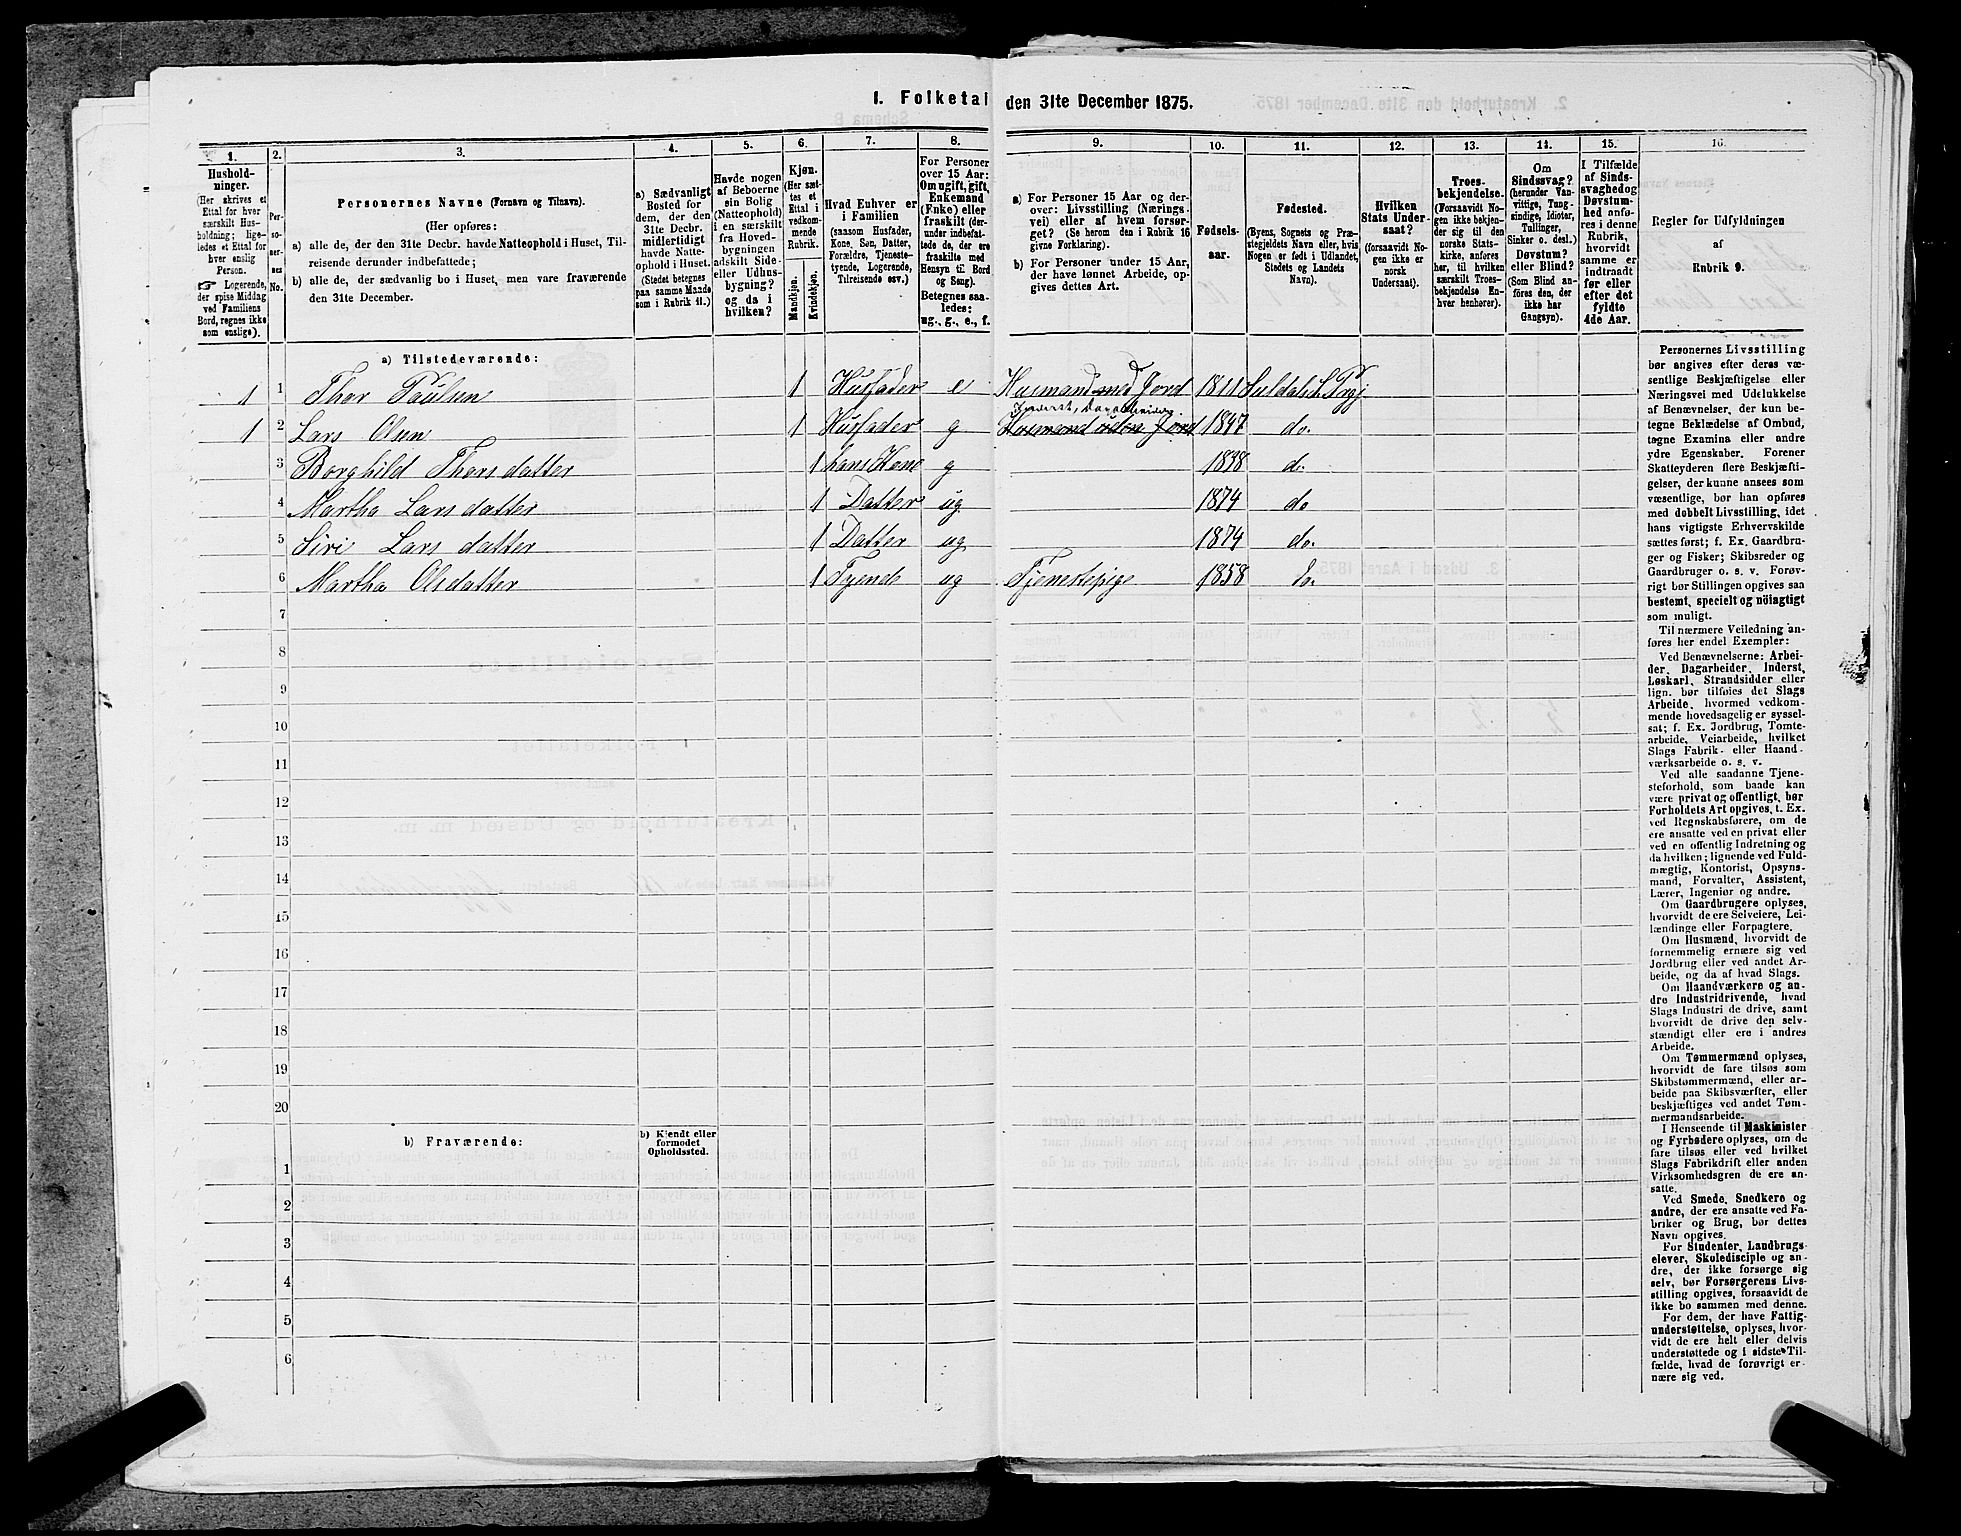 1. Folketal den 31te December 1875.
1. 2. 3. 4. 5. 6. 7. 8. 9. 10. 11. 12. 13. 14. 15. 16.
Hushold-
ninger.
(Her skrives et
Ettal for hver
særskilt Hus-
holdning; lige-
ledes et Ettal for
hver enslig
Person.
☞ Logerende,
der spise Middag
ved Familiens
Bord, regnes ikke
som enslige).
Per-
so-
ner-
nes
No.
Personernes Navne (Fornavn og Tilnavn).
(Her opføres:
a) alle de, der den 31te Decbr. havde Natteophold i Huset, Til-
reisende derunder indbefattede;
b) alle de, der sædvanlig bo i Huset, men vare fraværende
den 31te December.
a) Sædvanligt
Bosted for
dem, der den
31te Decbr.
midlertidigt
havde Natte-
ophold i Huset.
(Stedet betegnes
paa samme Maade
som i Rubrik 11.)
Havde nogen
af Beboerne
sin Bolig
(Natteophold)
i en særskilt
fra Hoved-
bygningen
adskilt Side-
eller Udhus-
bygning?
og da i
hvilken?
Kjøn.
(Her sæt-
tes et
Ettal i
vedkom-
mende
Rubrik.
Mandkjøn.
Kvindekjøn.
Hvad Enhver er
i Familien
(saasom Husfader,
Kone, Søn, Datter,
Forældre, Tjeneste-
tyende, Logerende,
Tilreisende osv.)
For Personer
over 15 Aar:
Om ugift, gift,
Enkemand
(Enke) eller
fraskilt (der-
under indbefat-
tede de, der ere
fraskilte med
Hensyn til Bord
og Seng).
Betegnes saa-
ledes:
ug., g., e., f.
a) For Personer 15 Aar og der-
over: Livsstilling (Nærings-
vei) eller af hvem forsør-
get? (Se herom den i Rubrik 16
givne Forklaring).
b) For Personer under 15 Aar,
der have lønnet Arbeide, op-
gives dettes Art.
Fødsels-
aar.
Fødested.
(Byens, Sognets og Præ-
stegjeldets Navn eller, hvis
Nogen er født i Udlandet,
Stedets og Landets
Navn).
Hvilken
Stats Under-
saat?
(forsaavidt No-
gen ikke er
norsk
Undersaat).
Troes-
bekjendelse.
(Forsaavidt No-
gen ikke bekjen-
der sig til den
norske Stats-
kirke, anføres
her, til hvilken
særskilt Troes-
bekjendelse En-
hver henhører).
Om
Sindssvag?
(herunder Van-
vittige, Tung-
sindige, Idioter,
Tullinger,
Sinker o. desl.)
Døvstum?
eller Blind?
(Som Blind an-
føres den, der
ikke har
Gangsyn).
I Tilfælde
af Sinds-
svaghed og
Døvstum-
hed anfø-
res i denne
Rubrik,
hvorvidt
samme er
indtraadt
før eller
efter det
fyldte
4de Aar.
Regler for Udfyldningen
af
Rubrik 9.
a) Tilstedeværende:
1 1 Thor Paulsen 1 Husfader e Husmand med Jord 1811 Suldalsh. Prgj
Inderst, Dagarbeider.
1 2 Lars Olsen 1 Husfader g Husmand uden Jord 1847 do.
3 Borghild Thorsdatter 1 hans Kone g 1838 do.
4 Martha Larsdatter 1 Datter ug. 1874 do
5 Siri Larsdatter 1 Datter ug 1874 do.
6 Martha Olsdatter 1 Tyende ug Tjenestepige 1858 do.
7
8
9
10
11
12
13
14
15
16
17
18
19
20
b) Fraværende:
b) Kjendt eller
formodet
Opholdssted.
1
2
3
4
5
6
Personernes Livsstilling
bør angives efter deres væ-
sentlige Beskjæftigelse eller
Næringsvei med Udelukkelse
af Benævnelser, der kun be-
tegne Beklædelse af Ombud,
tagne Examina eller andre
ydre Egenskaber. Forener
Skatteyderen flere Beskjæfti-
gelser, der kunne ansees som
væsentlige, bør han opføres
med dobbelt Livsstilling, idet
hans vigtigste Erhvervskilde
sættes først; f. Ex. Gaardbru-
ger og Fisker; Skibsreder og
Gaardbruger o. s. v. Forøv-
rigt bør Stillingen opgives saa
bestemt, specielt og nöiagtigt
som muligt.
Til nærmere Veiledning an-
føres her endel Exempler:
Ved Benævnelserne: Arbei-
der, Dagarbeider, Inderst,
Løskarl, Strandsidder eller
lign. bør tilføies det Slags
Arbeide, hvormed vedkom-
mende hovedsagelig er syssel-
sat; f. Ex. Jordbrug, Tomte-
arbeide, Veiarbeide, hvilket
Slags Fabrik- eller Haand-
værksarbeide o. s. v.
Ved alle saadanne Tjene-
steforhold, som baade kan
være privat og offentligt, bør
Forholdets Art opgives, t. Ex.
ved Regnskabsførere, om de
ere ansatte ved en privat eller
ved en offentlig Indretning og
da hvilken; lignende ved Fuld-
mægtig, Kontorist, Opsyns-
mand, Forvalter, Assistent,
Lærer, Ingeniør og andre.
Om Gaardbrugere oplyses,
hvorvidt de ere Selveiere, Lei-
lændinge eller Forpagtere.
Om Husmænd, hvorvidt de
fornemmelig ernære sig ved
Jordbrug eller ved andet Ar-
beide, og da af hvad Slags.
Om Haandværkere og an-
dre Industridrivende, hvad
Slags Industri de drive, samt
hvorvidt de drive den selv-
stændigt eller ere i andres
Arbeide.
Om Tømmermænd oplyses,
hvorvidt de fare tilsøs som
Skibstømmermænd, eller ar-
beide paa Skibsværfter, eller
beskjæftiges ved andet Tøm-
mermandsarbeide.
I Henseende til Maskinister
og Fyrbødere oplyses, om de
fare tilsøs eller ved hvilket
Slags Fabrikdrift eller anden
Virksomhedsgren de ere an-
satte.
Ved Smede, Snedkere og
andre, der ere ansatte ved Fa-
briker og Brug, bør dettes
Navn opgives.
For Studenter, Landbrugs-
elever, Skoledisciple og an-
dre, der ikke forsørge sig
selv, bør Forsørgerens Livs-
stilling opgives, forsaavidt de
ikke bo sammen med denne.
For dem, der have Fattig-
understøttelse, oplyses, hvor-
vidt de ere helt eller delvis
understøttede og i sidste Til-
fælde, hvad de forøvrigt er-
nære sig ved.